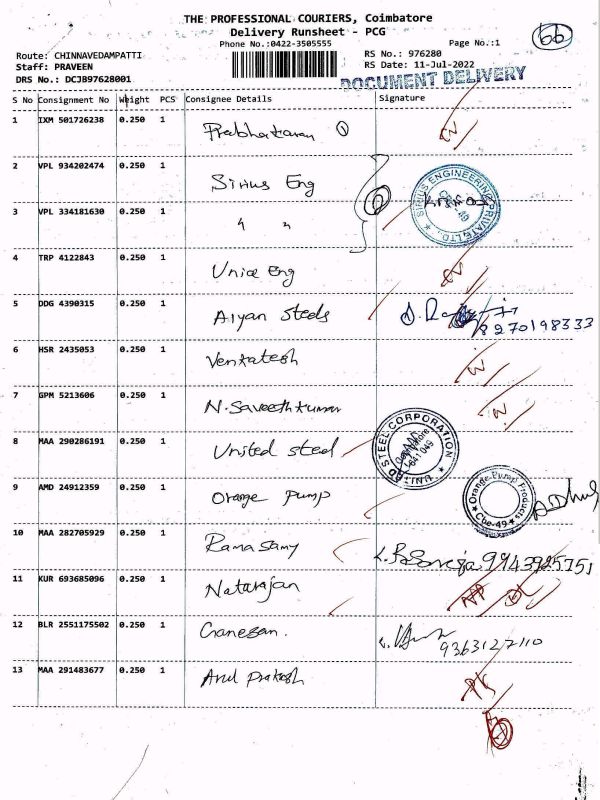 THE PROFESSIONAL COURIERS, Coimbatore
Delivery Runsheet - PCG
Phone No.:0422-3505555
Page No.:1
66
Route: CHINNAVEDAMPATTI
Staff: PRAVEEN
DRS No.: DCJ897628001
RS No.: 976280
RS Date: 11-Jul-2022
DOCUMENT DELIVERY
S No Consignment No Weight PCS Consignee Details Signature
1 IXM 501726238 0.250 1 Prabhakaran 1
2 VPL 934202474 0.250 1 Sirius Eng
SIRIUS ENGINEERING PRIVATE LTD.
3 VPL 334181630 0.250 1 " "
4 TRP 4122843 0.250 1 Unice Eng
5 DDG 4390315 0.250 1 Aiyan Steels
8270198333
6 HSR 2435053 0.250 1 Venkatesh
7 GPM 5213606 0.250 1 N. Saveethkumar
8 MAA 290286191 0.250 1 United steel
UNITED STEEL CORPORATION
641 049
9 AMD 24912359 0.250 1 Orange Pump
Orange Pump Products
Cbe-49
10 MAA 282705929 0.250 1 Ramasamy
9943925751
11 KUR 693685096 0.250 1 Natarajan
12 BLR 2551175502 0.250 1 Ganesan.
9363127110
13 MAA 291483677 0.250 1 Arul Prakash